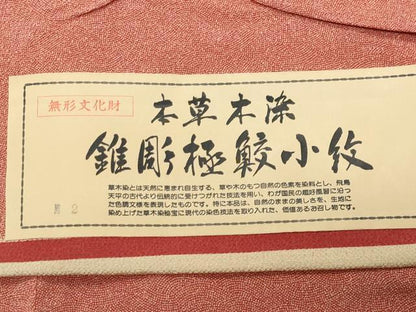 無形文化財
本草木染
錐彫極鮫小紋
草木染とは天然に恵まれ自生する、草や木のもつ自然の色素を染料とし、飛鳥
天平の古代より伝統的に受けつがれた技法を用い、わが国民の趣好風層に沿っ
た色調文様を表現したものです。特に本品は、自然のままの美しさを、生地に
染め上げた草木染紬宝に現代の染色技法を取り入れた、価値あるお召し物です。
2